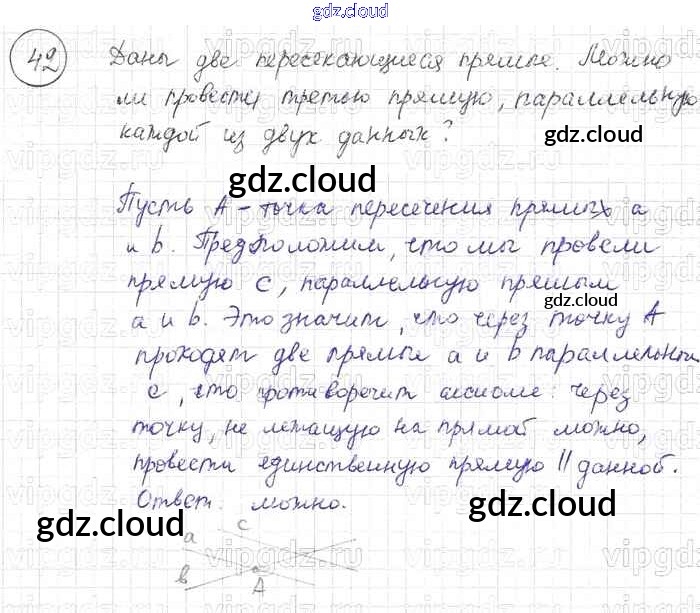 gdz.cloud
42 Даны две пересекающиеся прямые. Можно
ли провести третью прямую, параллельную
каждой из двух данных?
gdz.cloud
gdz.cloud
Пусть А - точка пересечения прямых а
и b. Предположим, что мы провели
прямую с, параллельную прямым
gdz.cloud
а и b. Это значит, что через точку А
проходят две прямые а и b параллельны
с, что противоречит аксиоме: через
точку, не лежащую на прямой можно,
провести единственную прямую || данной.
Ответ: можно.
gdz.cloud
gdz.cloud
a c
b A
gdz.cloud